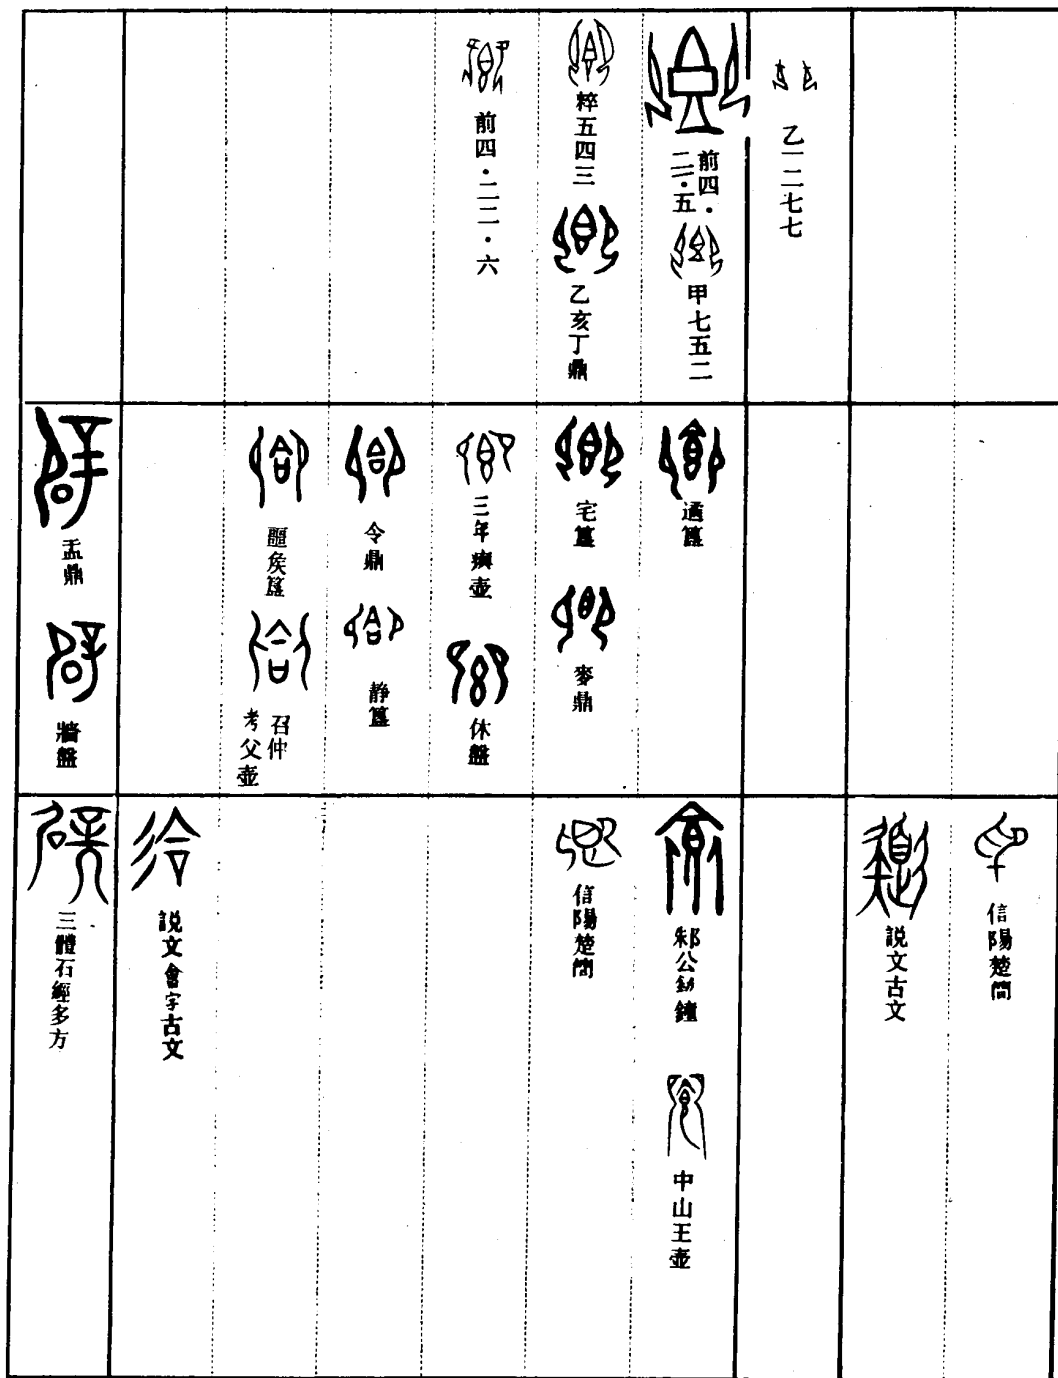 乙一二七七
前四・二一・五
甲七五二
粹五四三
乙亥丁鼎
前四・二二・六
遹簋
宅簋
麥鼎
三年𤼈壺
休盤
令鼎
靜簋
噩侯簋
召仲考父壺
盂鼎
牆盤
信陽楚簡
説文古文
邾公釛鐘
中山王壺
信陽楚簡
説文會字古文
三體石經多方